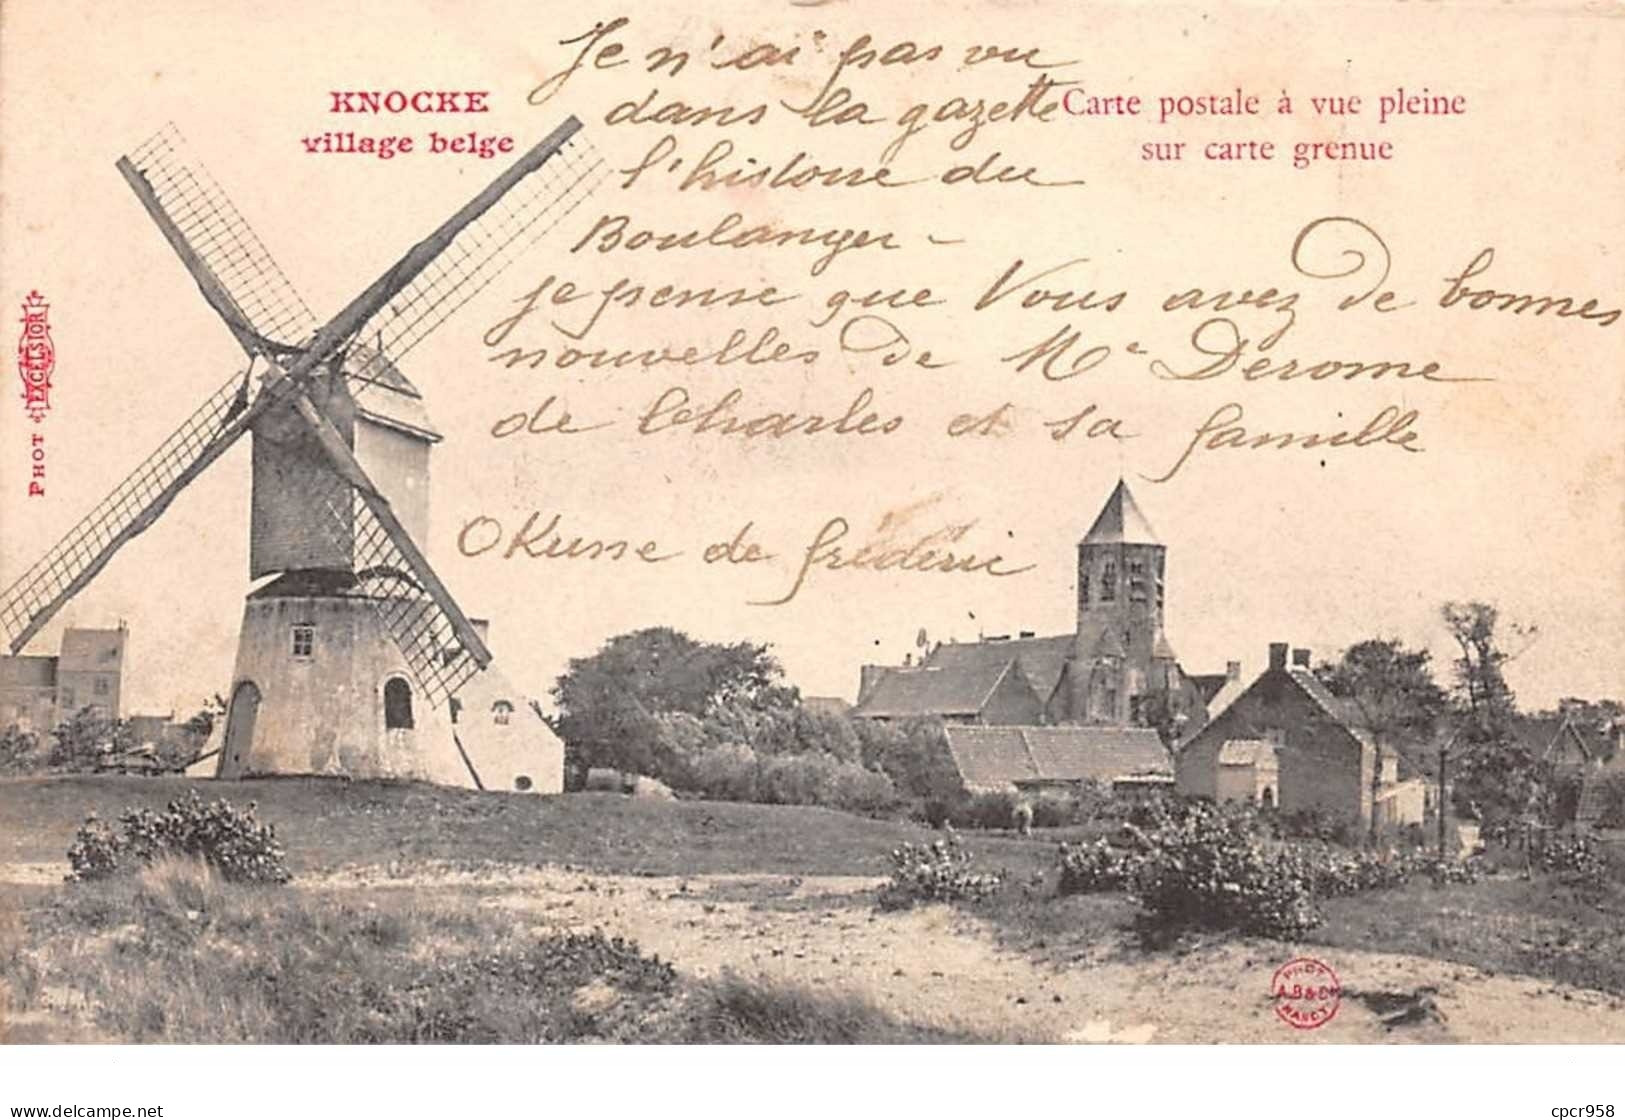 KNOCKE
village belge
Carte postale à vue pleine
sur carte grenue
PHOT EXCELSIOR
Je n'ai pas vu
dans la gazette
l'histoire du
Boulanger -
je pense que Vous avez de bonnes
nouvelles de Me Derome
de Charles et sa famille
de fréderic
PHOT
A.B & Cie
NANCY
delcampe.net
cpcr958